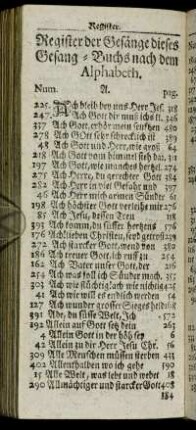 Register.
Register der Gesänge dieses
Gesang-Buchs nach dem
Alphabeth.
Num. A. pag.
225. Ach bleib bey uns Herr Jes. 318
247. Ach Gott dir muß ichs kl. 346
337 Ach Gott, erhör mein seufzen 480
278 Ach Gott sehr schrecklich ist 389
48 Ach Gott und Herr, wie groß 64
218 Ach Gott vom himmel sieh dar.
197 Ach Gott, wie manches hertzl. 274
275 Ach Herre, du gerechter Gott 384
282 Ach Herr in viel Gefahr und 397
46 Ach Herr mich armen Sünder 62
198 Ach höchster Gott verleihe mir 276
85 Ach Jesu, dessen Treu
393 Ach komm, du süsser hertzens 576
376 Ach lieben Christen, seyd getrost
272 Ach starcker Gott, wend von 380
186 Ach treuer Gott, ich ruff zu 254
162 Ach Vater unser Gott, der 216
254 Ach was soll ich Sünder mach. 355
303 Ach wie flüchtig ach wie nichtig 428
42 Ach wie will es endlich werden 54
127 Ach wunder grosser Sieges held
391 Ade, du süsse Welt, Ich 572
192 Allein auf Gott setz dein 263
4 Allein Gott in der höh sey 6
42 Allein zu dir Herr Jesu Chr.
309 Alle Menschen müssen sterben 438
402 Allenthalben wo ich gehe
15 Alle Welt, was lebt und webet 18
290 Allmächtiger und starcker Gott 408
184